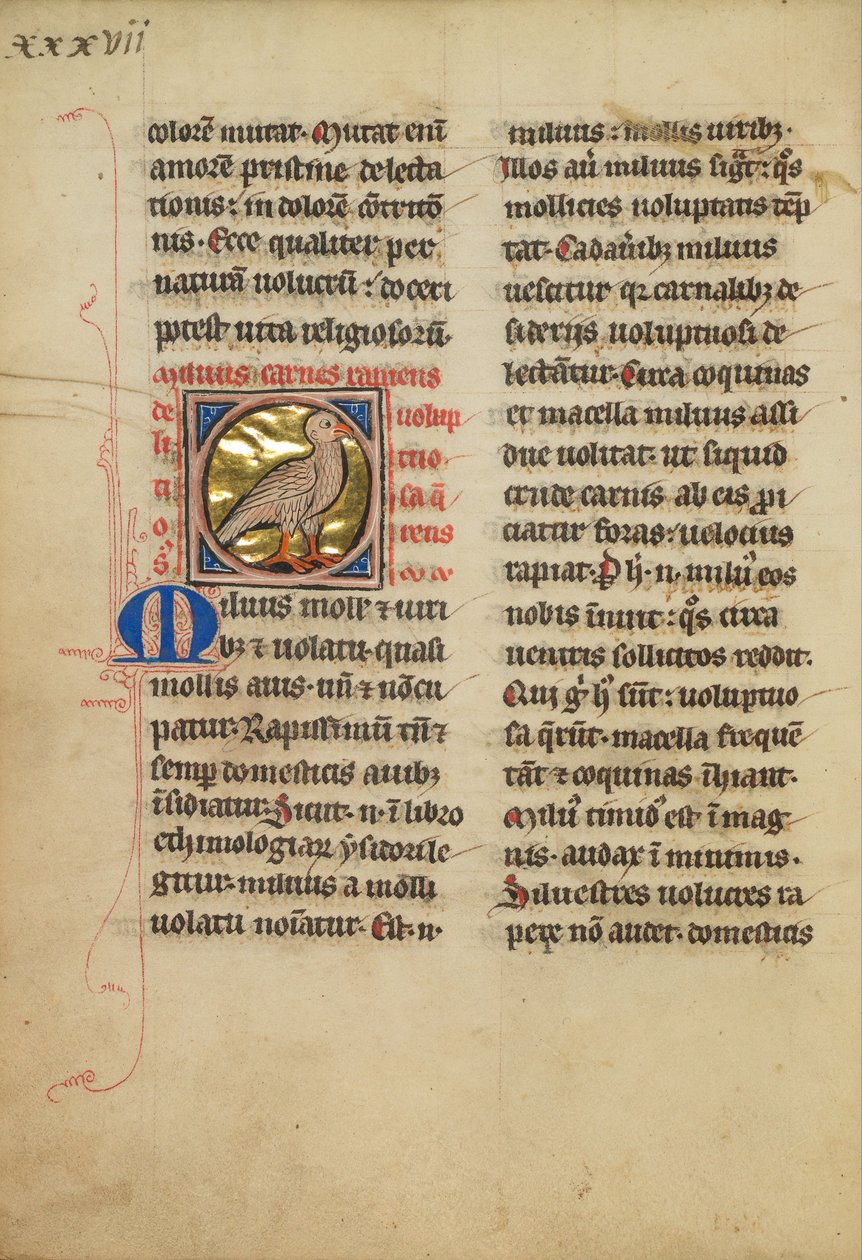 xxxvii
colorē mutat. Mutat enī
amorē pristine delecta
tionis: in dolorē cōtritō
nis. Ecce qualiter per
naturā uolucrū: doceri
potest uita religiosorū.
Miluus carnes rapiens
de uolup
li tuo
ti sa q̄
o rens
s̉
Miluus mollˀ ⁊ uiri
bꝫ ⁊ uolatu. quasi
mollis auis. uñ ⁊ nōcu
patur. Rapissimū tñ ⁊
semꝑ domesticis auibꝫ
īsidiatur. Sicut. n. ī libro
ethimologiaꝝ ysidori le
gitur. miluus a molli
uolatu noīatur. Est. n.
miluus: mollis uiribꝫ.
Illos aū miluus sigᵃt: qᵒs
mollicies uoluptatis tēp
tat. Cadauībꝫ miluus
uescitur qꝛ carnalibꝫ de
siderijs uoluptuosi de
lectātur. Circa coquinas
et macella miluus assi
due uolitat. ut siquid
crude carnis ab eis ꝓi
ciatur foras: uelocius
rapiat. Ꝑ h̉. n. miluꝰ eos
nobis īnuit: qᵒs circa
uentris sollicitos reddit.
Qui gͥ hͦ sūt: uoluptuo
sa q̄rūt. macella frequē
tāt ⁊ coquinas īhiant.
Miluꝰ timidꝰ est ī mag
nis. audax ī minimis.
Siluestres uolucres ra
pere nō audet. domesticis